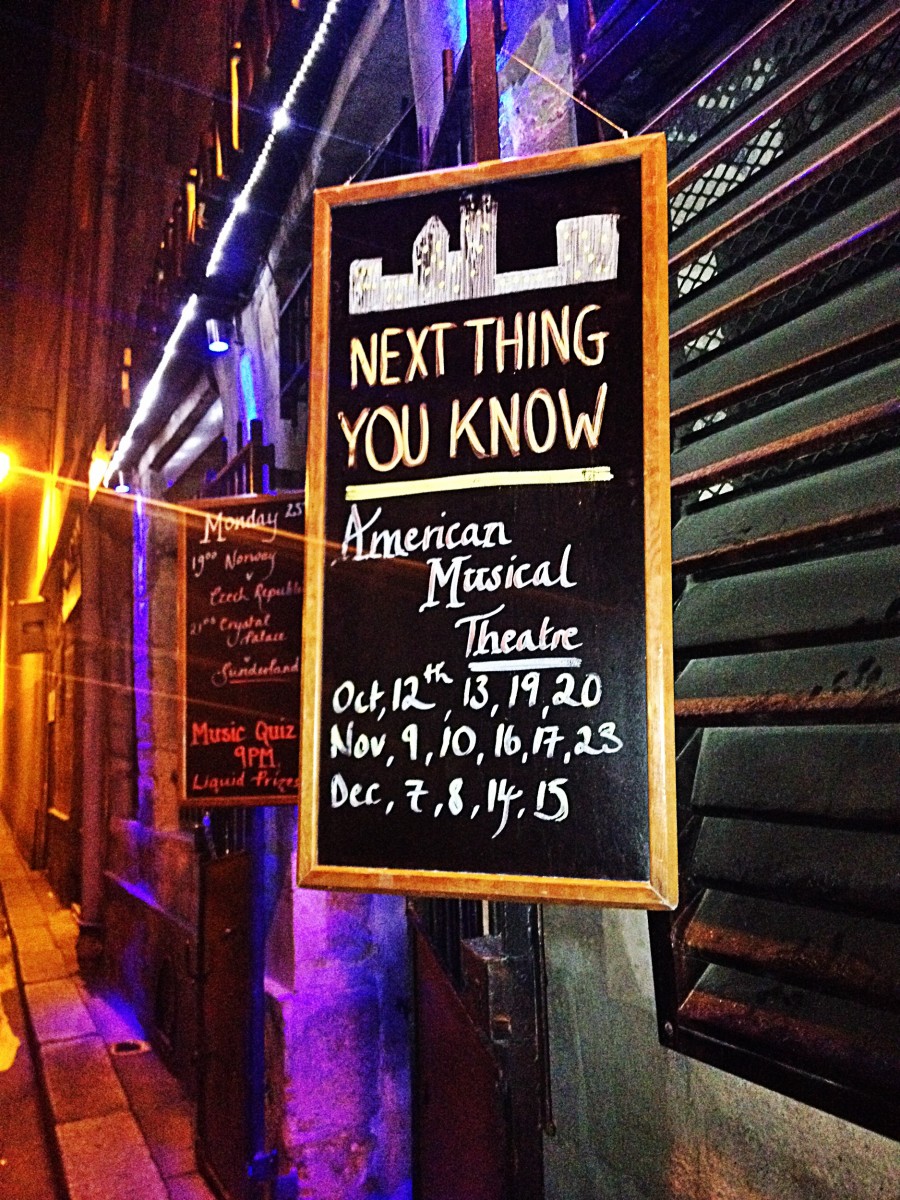 NEXT THING
YOU KNOW
American
Musical
Theatre
Oct, 12th, 13, 19, 20
Nov, 9, 10, 16, 17, 23
Dec, 7, 8, 14, 15
Monday 25
19:00 Norway
v
Czech Republic
21:00 Crystal
Palace
v
Sunderland
Music Quiz
9PM
Liquid Prizes